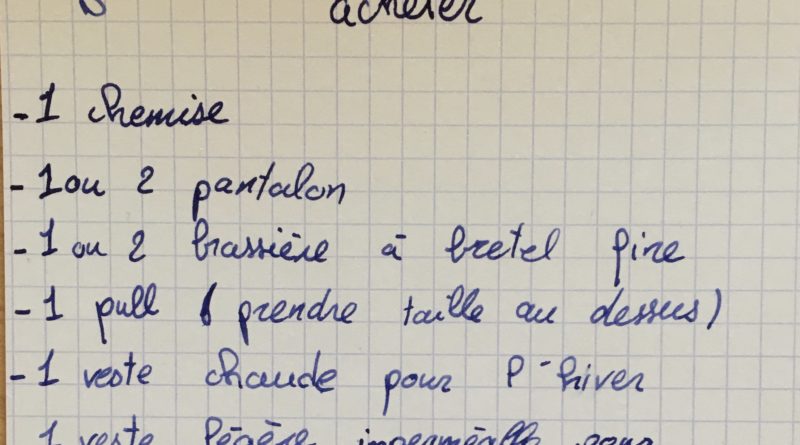 acheter
- 1 chemise
- 1 ou 2 pantalon
- 1 ou 2 brassière à bretel fine
- 1 pull ( prendre taille au dessus )
- 1 veste chaude pour l'hiver
1 veste légère imperméable